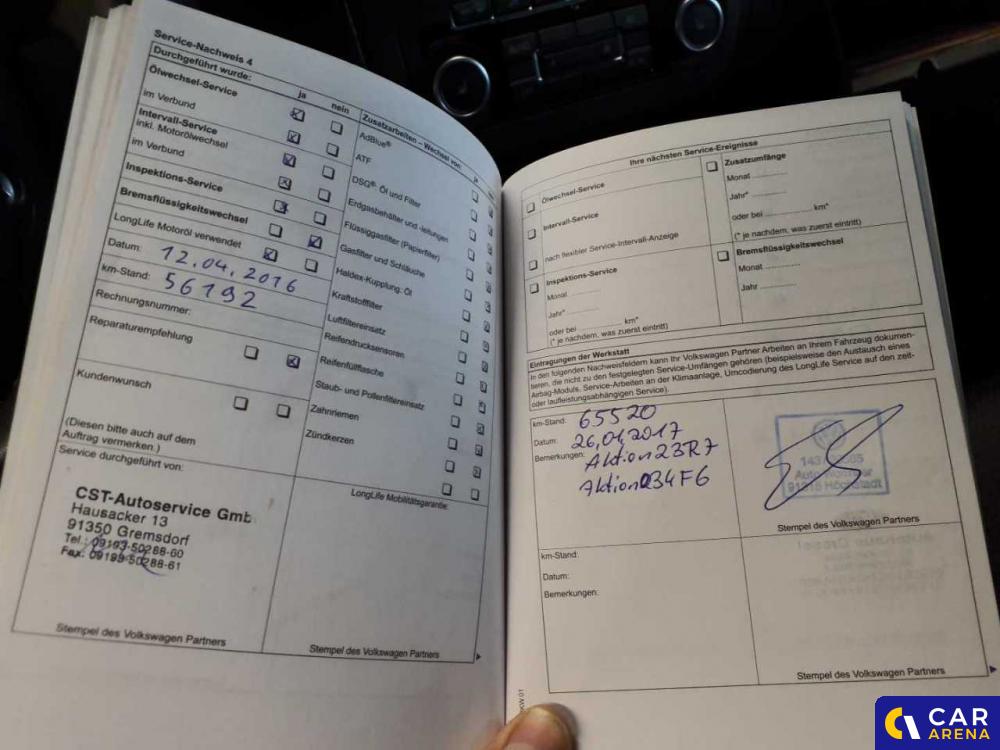 Service-Nachweis 4
Durchgeführt wurde: ja nein
Ölwechsel-Service
im Verbund
Intervall-Service
inkl. Motorölwechsel
im Verbund
Inspektions-Service
Bremsflüssigkeitswechsel
LongLife Motoröl verwendet
Datum: 12.04.2016
km-Stand: 56192
Rechnungsnummer:
Reparaturempfehlung
Kundenwunsch
(Diesen bitte auch auf dem
Auftrag vermerken.)
Service durchgeführt von:
CST-Autoservice Gmb
Hausacker 13
91350 Gremsdorf
Tel.: 09193-50288-60
Fax: 09193-50288-61
Stempel des Volkswagen Partners
Zusatzarbeiten – Wechsel von: ja
AdBlue®
ATF
DSG®- Öl und Filter
Erdgasbehälter und -leitungen
Flüssiggasfilter (Papierfilter)
Gasfilter und Schläuche
Haldex-Kupplung: Öl
Kraftstofffilter
Luftfiltereinsatz
Reifendrucksensoren
Reifenfüllflasche
Staub- und Pollenfiltereinsatz
Zahnriemen
Zündkerzen
LongLife Mobilitätsgarantie:
Stempel des Volkswagen Partners
Ihre nächsten Service-Ereignisse
Ölwechsel-Service
Intervall-Service
nach flexibler Service-Intervall-Anzeige
Inspektions-Service
Monat ............
Jahr* ............
oder bei ............ km*
(* je nachdem, was zuerst eintritt)
Zusatzumfänge
Monat ............
Jahr* ............
oder bei ............ km*
(* je nachdem, was zuerst eintritt)
Bremsflüssigkeitswechsel
Monat ............
Jahr ............
Eintragungen der Werkstatt
In den folgenden Nachweisfeldern kann Ihr Volkswagen Partner Arbeiten an Ihrem Fahrzeug dokumen-
tieren, die nicht zu den festgelegten Service-Umfängen gehören (beispielsweise den Austausch eines
Airbag-Moduls, Service-Arbeiten an der Klimaanlage, Umcodierung des LongLife Service auf den zeit-
oder laufleistungsabhängigen Service).
km-Stand: 65520
Datum: 26.01.2017
Bemerkungen: Aktion 23R7
Aktion 234F6
Stempel des Volkswagen Partners
km-Stand:
Datum:
Bemerkungen:
Stempel des Volkswagen Partners
CAR
ARENA